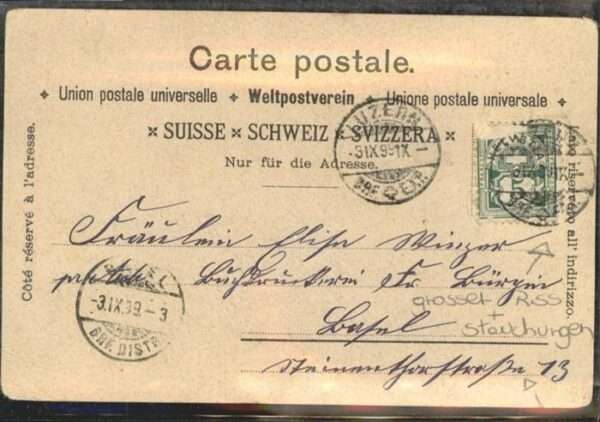 Carte postale.
Union postale universelle ✦ Weltpostverein ✦ Unione postale universale
× SUISSE × SCHWEIZ × SVIZZERA ×
Nur für die Adresse.
Côté réservé à l'adresse.
riservato all' indirizzo.
LUZERN
3.IX.99.IX-
BRF. EXP.
Fräulein Elisa Winzer
Buchdruckerei Fr. Bürgin
Basel
Steinenthorstraße 13
grosser Riss
+
BASEL
-3.IX.99.-3
BRF. DISTR.